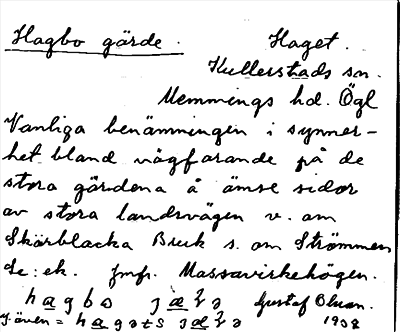 Hagbo gärde. Haget.
Kullerstads sn.
Memmings hd. Ögl
Vanliga benämningen i synner-
het bland vägfarande på de
stora gärdena å ömse sidor
av stora landsvägen v. om
Skärblacka Bruk s. om Strömmen
Se: ek. jmf. Massavirkehögen.
Gustaf
även = 1928